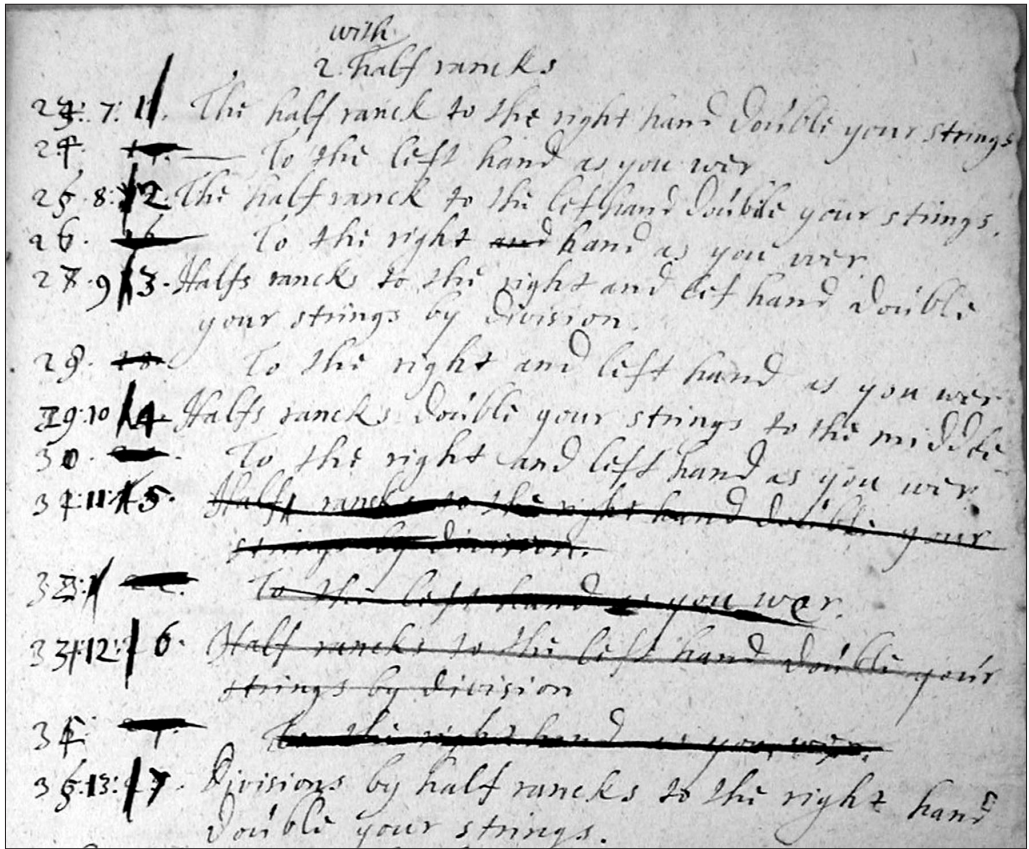 with
2. half rancks
7: The half ranck to the right hand double your strings
24. To the left hand as you wer
25. 8: 12. The half ranck to the left hand double your strings.
26. To the right and hand as you wer.
27. 9 13. Halfs rancks to the right and lef hand double
your strings by division.
To the right and left hand as you wer
29. 10 14 Halfs rancks double your strings to the middle
30. To the right and left hand as you wer
11: 15. Half rancks to the right hand double your
strings by division.
To the left hand as you wer.
12: 6. Half rancks to the left hand double your
strings by division
To the right hand as you wer.
13: 7. Divisions by half rancks to the right hand
double your strings.